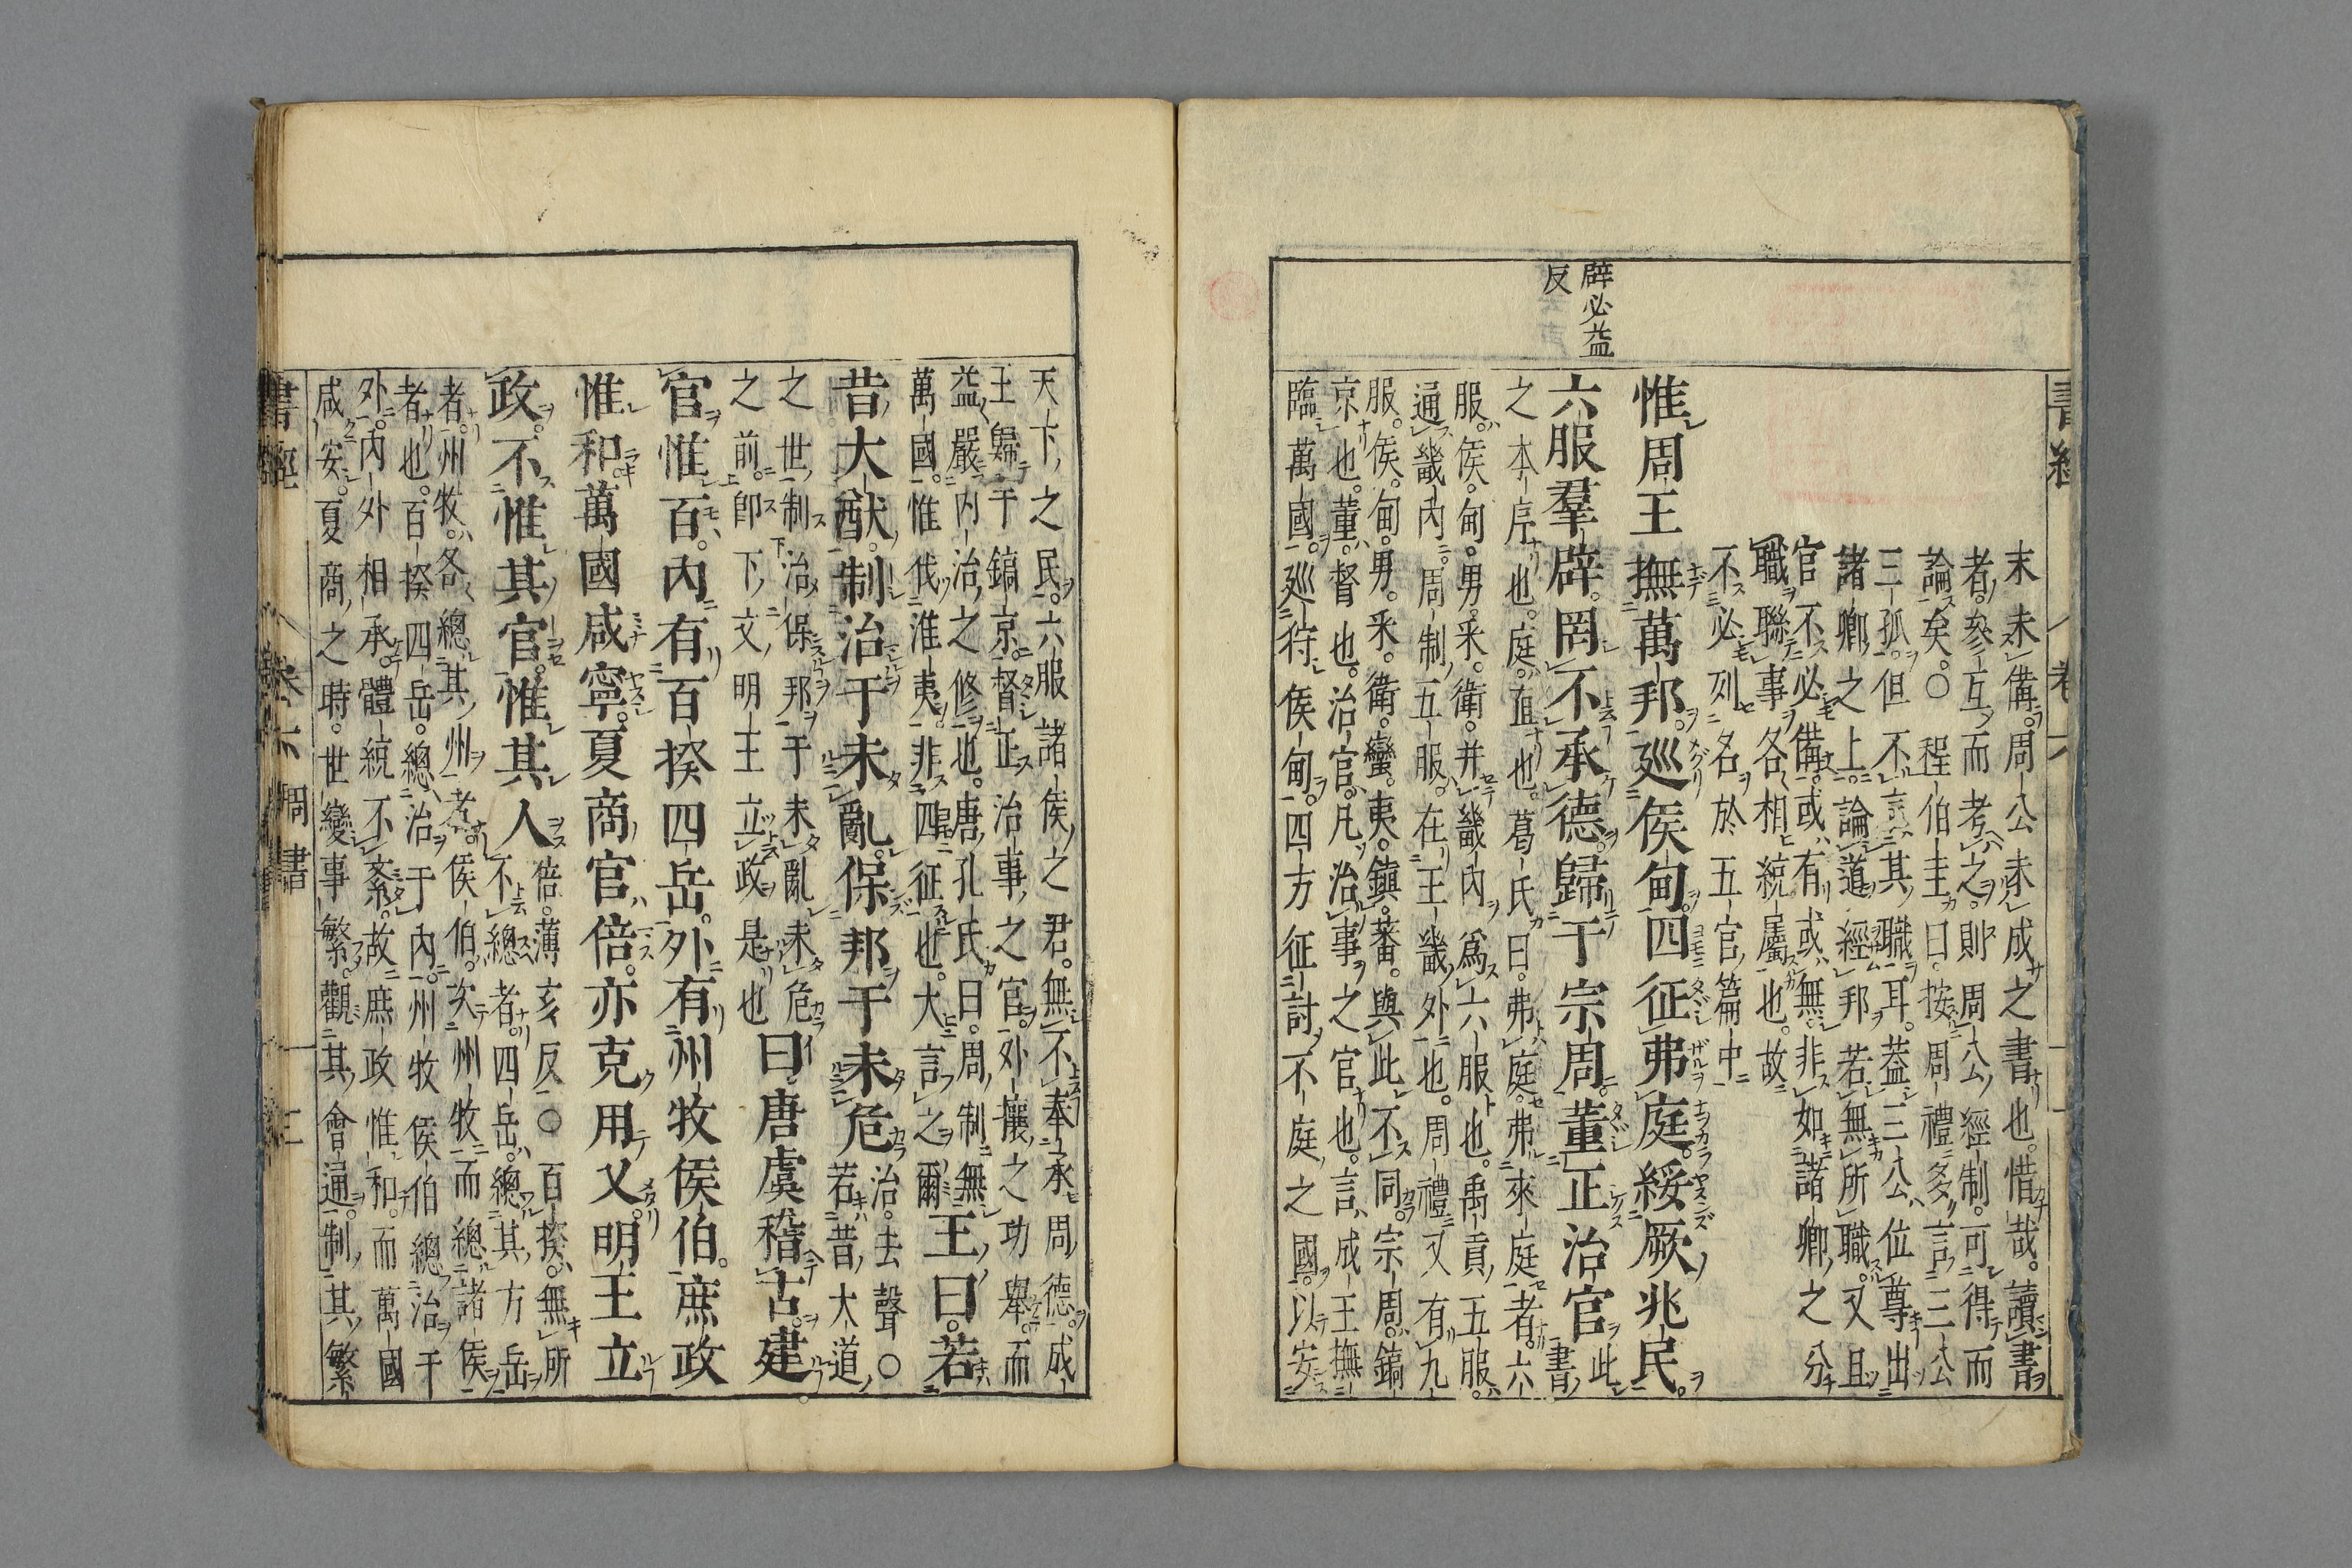 書經
卷六
末未備周公未成之書也惜哉讀書
者參互而考之則周公經制可得而
論矣○程伯圭曰按周禮多言三公
三孤但不言其職耳蓋三公位尊出
諸卿之上論道經邦若無所職又且
官不必備或有或無非如諸卿之分
職聯事各相統屬也故
不必列名於五官篇中
惟周王撫萬邦巡侯甸四征弗庭綏厥兆民
六服羣辟罔不承德歸于宗周董正治官此書
之本序也庭直也葛氏曰弗庭弗來庭者六
服侯甸男采衛并畿內爲六服也禹貢五服
通畿內周制五服在王畿外也周禮又有九
服侯甸男采衛蠻夷鎮蕃與此不同宗周鎬
京也董督也治官凡治事之官也言成王撫
臨萬國巡狩侯甸四方征討不庭之國以安
辟必益
反
天下之民六服諸侯之君無不奉承周德成
王歸于鎬京督正治事之官外攘之功舉而
益嚴內治之修也唐孔氏曰周制無
萬國惟伐淮夷非四征也大言之爾王曰若
昔大猷制治于未亂保邦于未危治去聲○若昔大道
之世制治保邦于未亂未危
之前卽下文明王立政是也曰唐虞稽古建
官惟百內有百揆四岳外有州牧侯伯庶政
惟和萬國咸寧夏商官倍亦克用乂明王立
政不惟其官惟其人倍薄亥反○百揆無所不總者四岳總其方岳
者州牧各總其州者侯伯次州牧而總諸侯
者也百揆四岳總治于內州牧侯伯總治于
外內外相承體統不紊故庶政惟和而萬國
咸安夏商之時世變事繁觀其會通制其繁
書經
卷六
周書
三